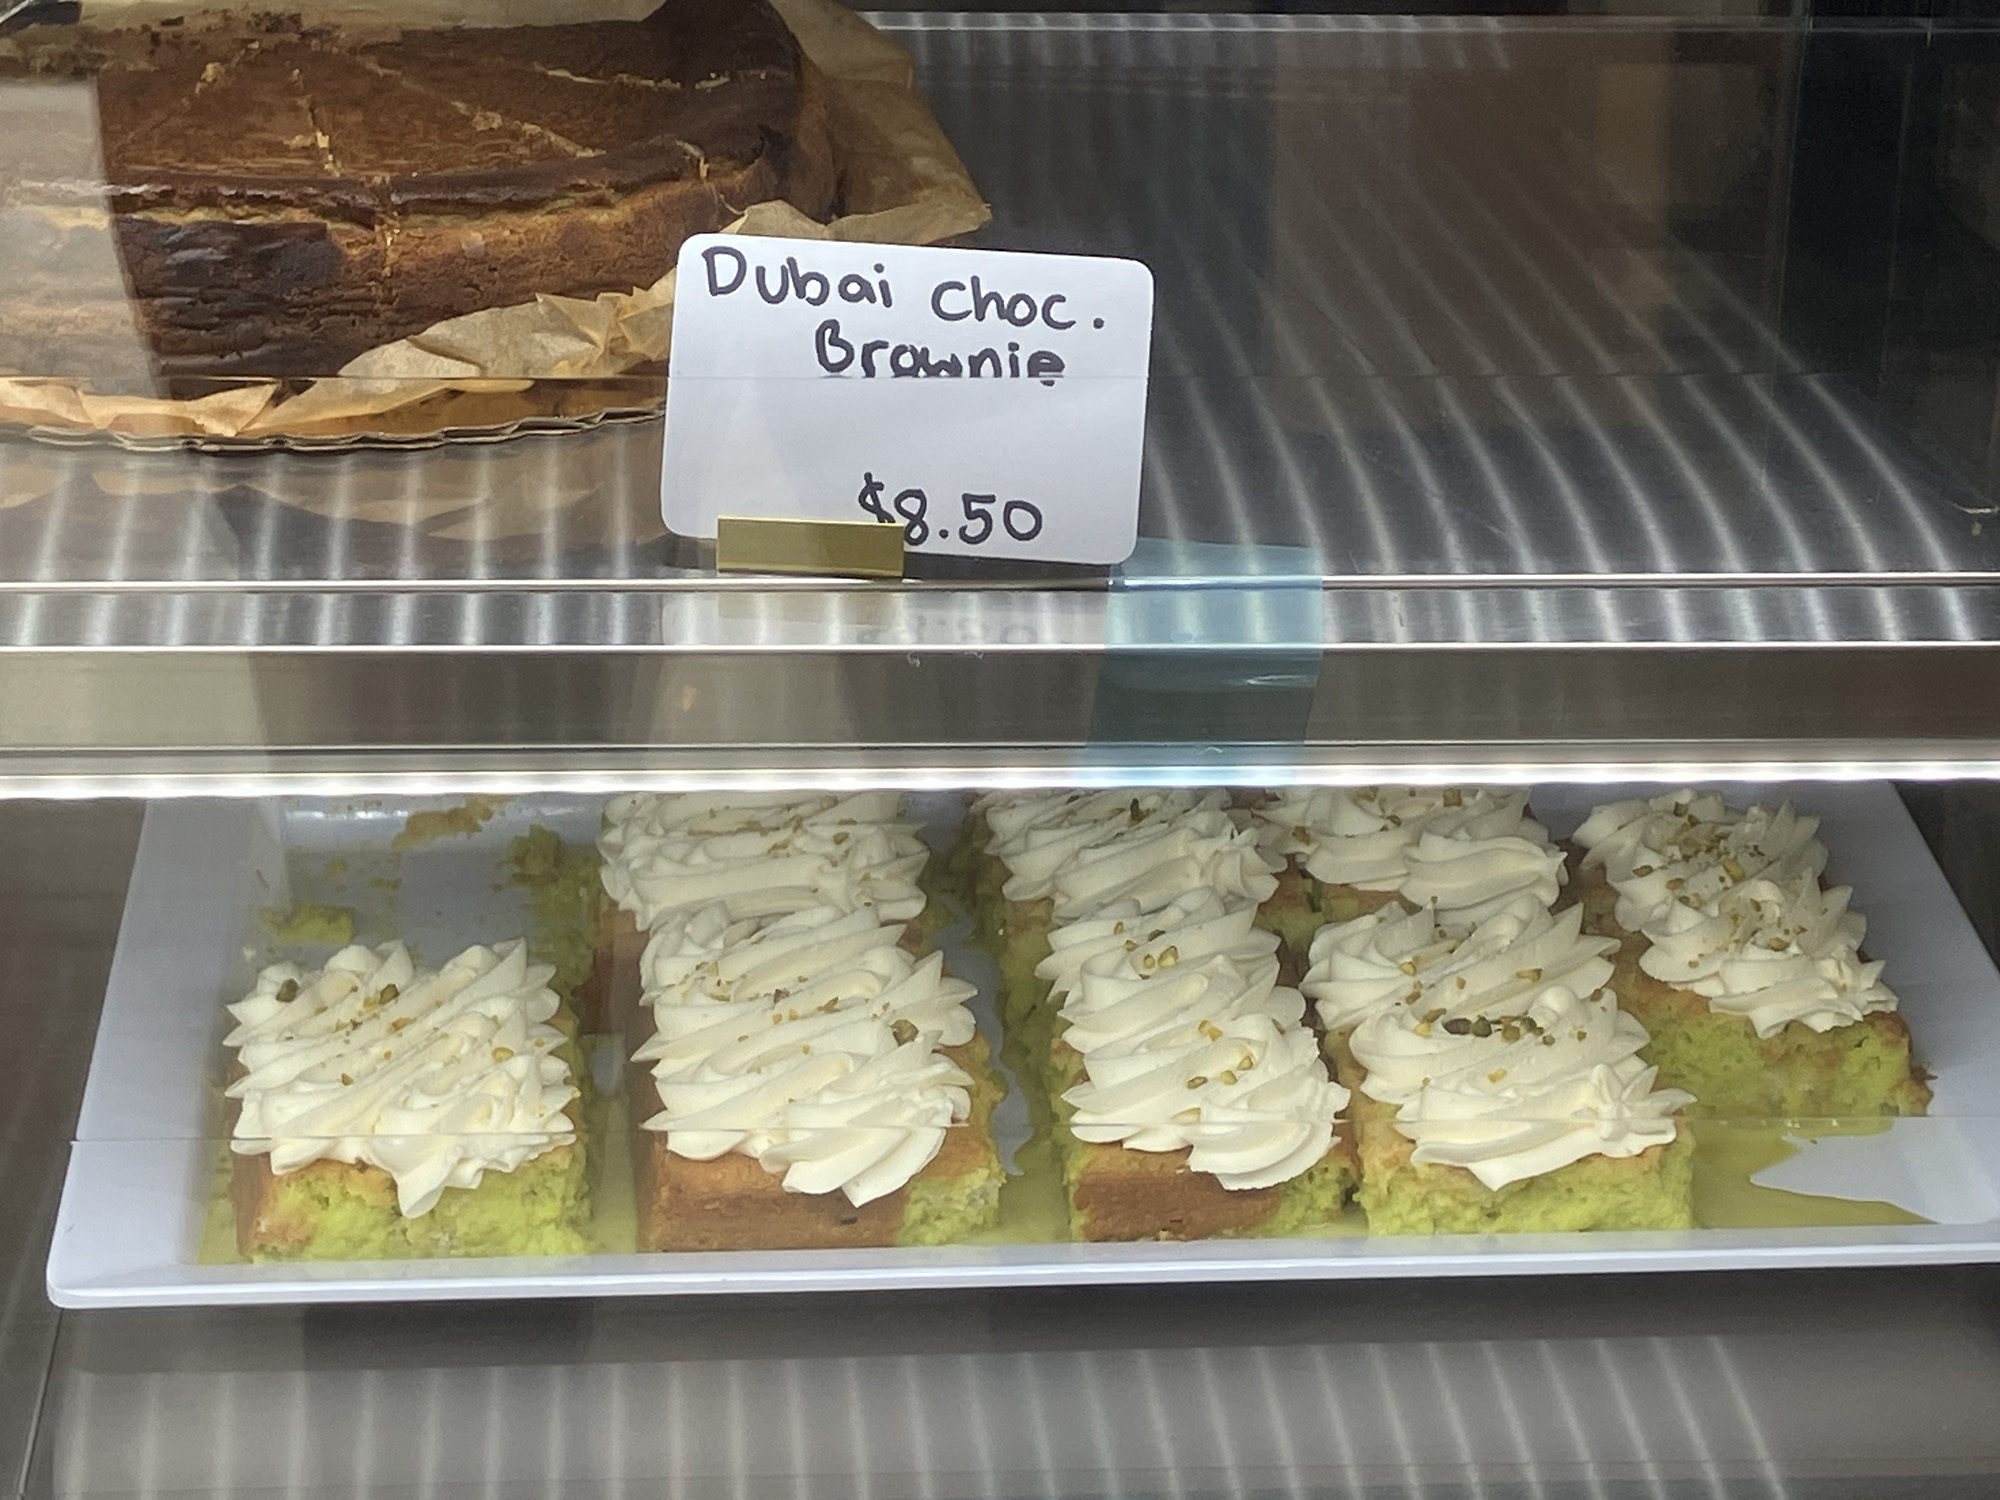 Dubai choc.
Brownie
$8.50